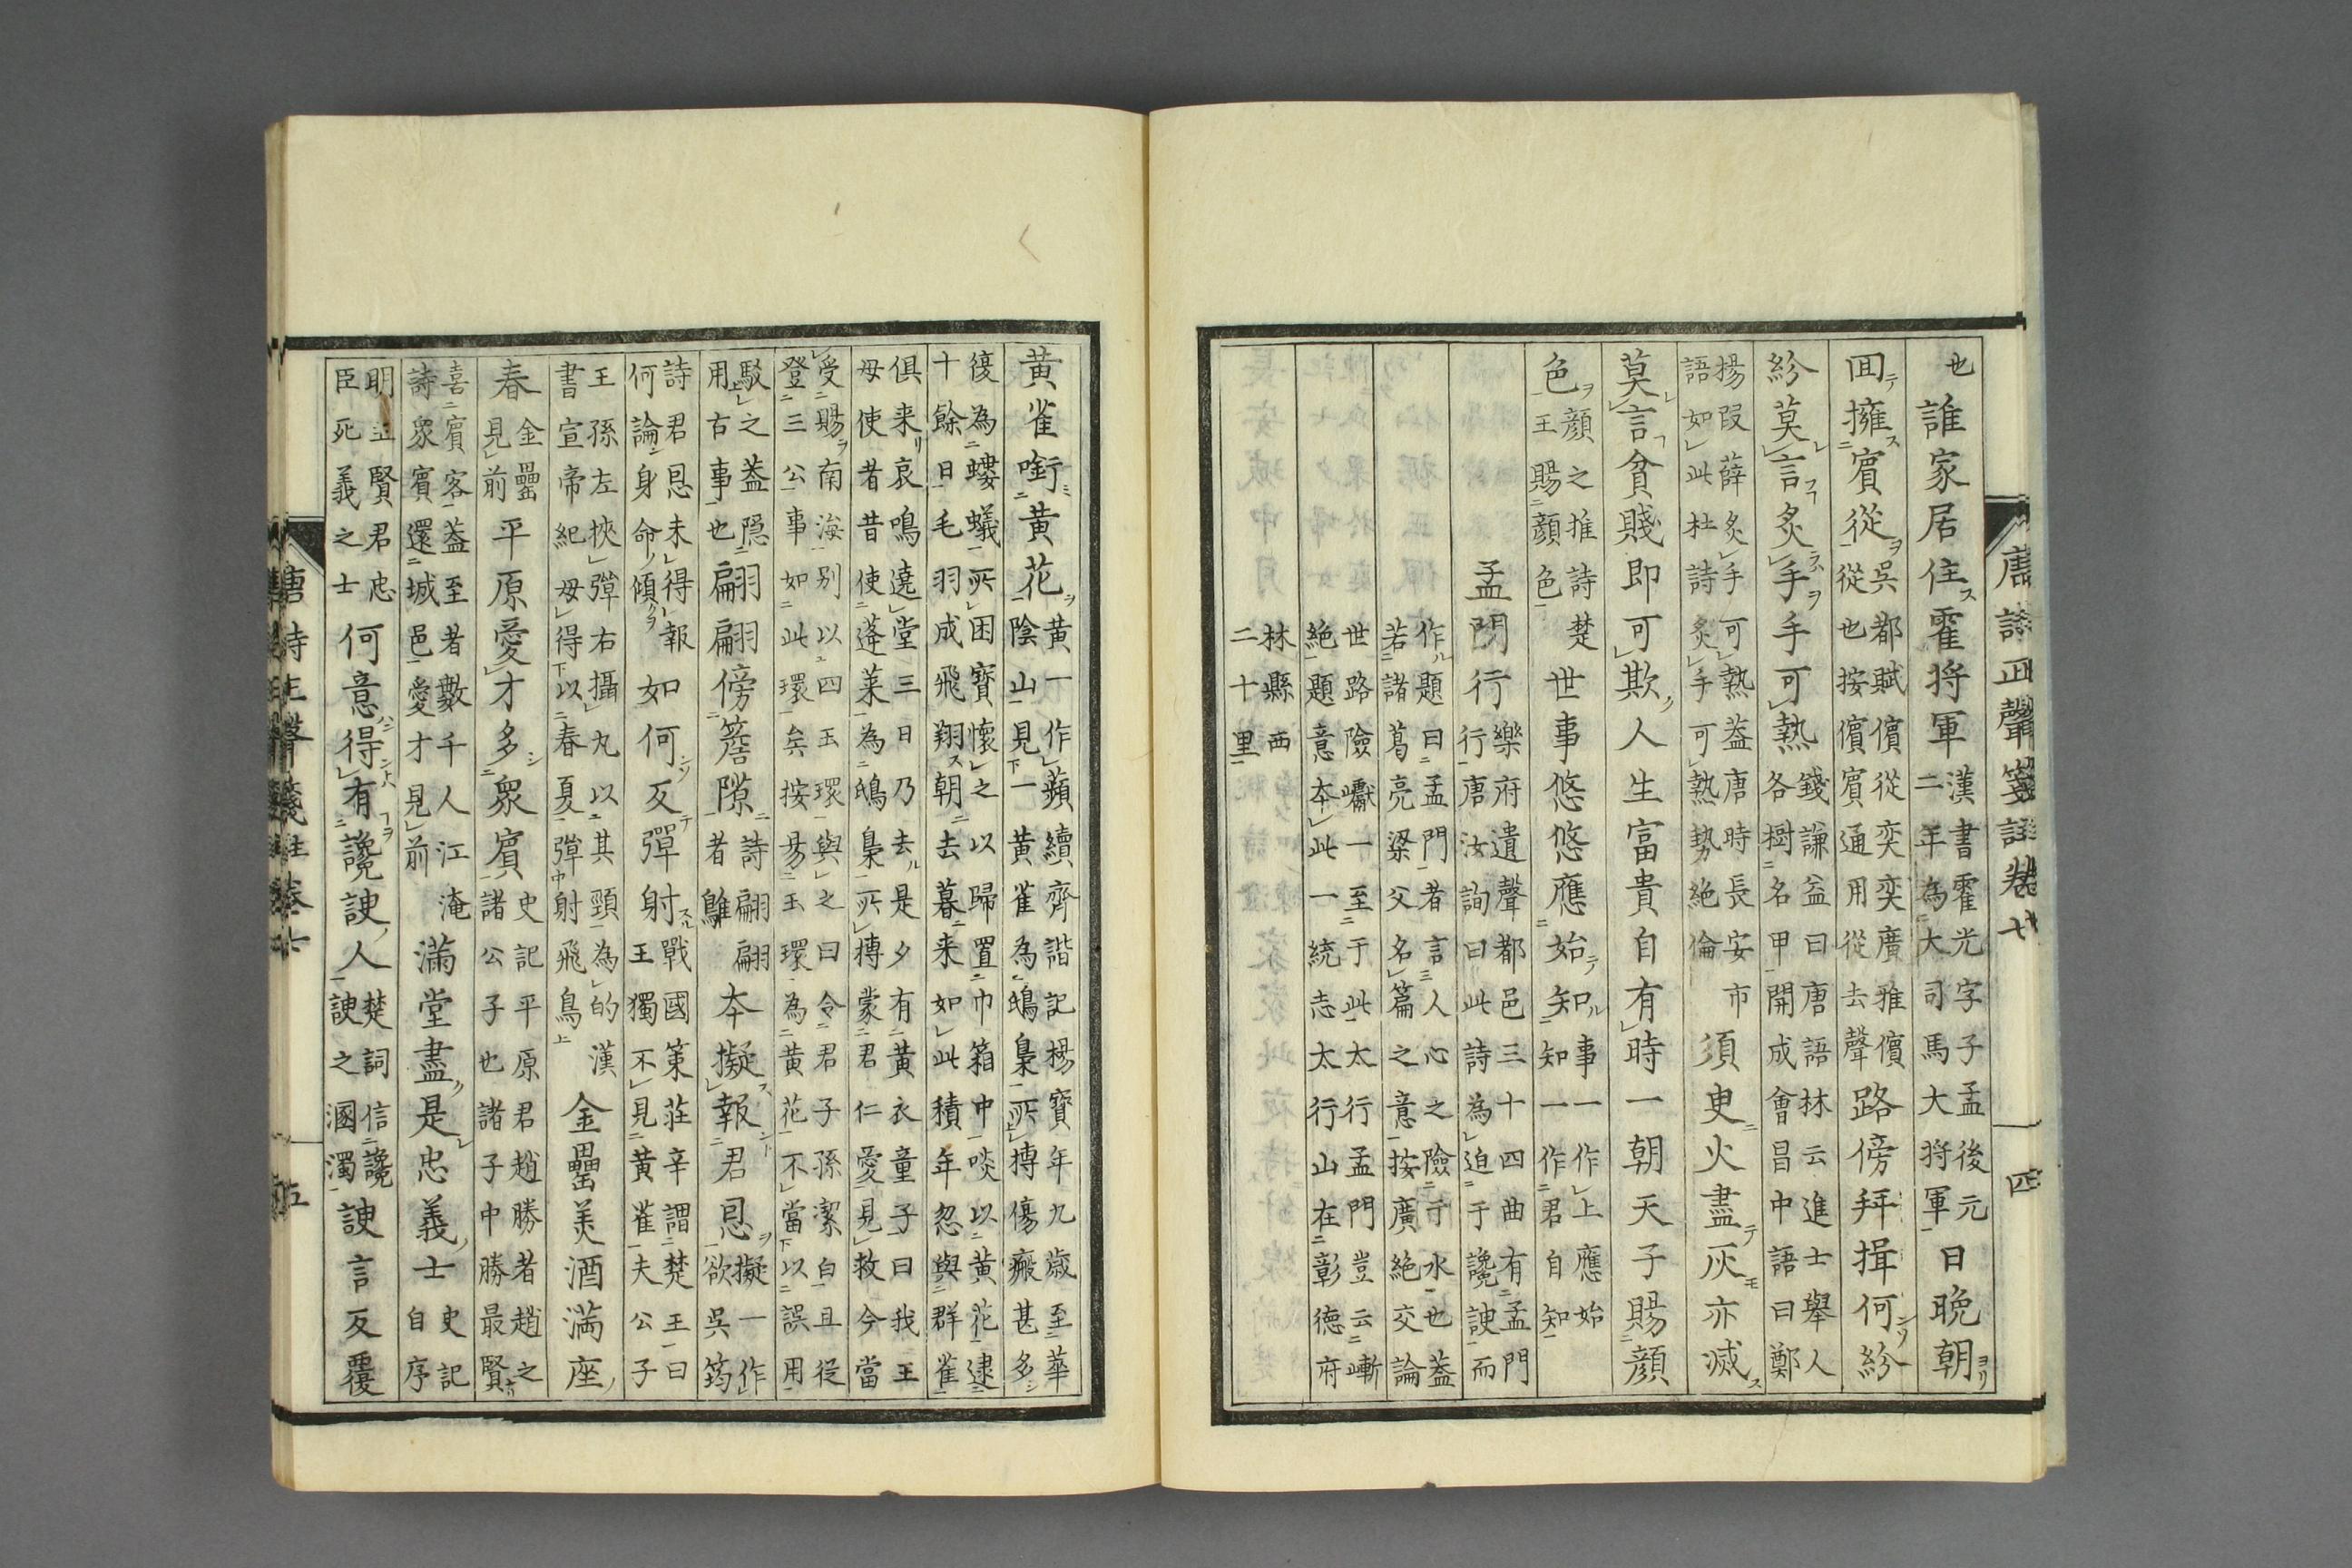 唐詩正聲箋註卷七 四
也誰家居住霍將軍漢書霍光字子孟後元二年為大司馬大將軍日晚朝
回擁賓從吳都賦儐從奕奕廣雅儐從也按儐賓通用從去聲路傍拜揖何紛
紛莫言炙手手可熱錢謙益曰唐語林云進士舉人各樹名甲開成會昌中語曰鄭
楊段薛炙手可熱蓋唐時長安市語如此杜詩炙手可熱勢絶倫須臾火盡灰亦滅
莫言貧賤即可欺人生富貴自有時一朝天子賜顔
色顔之推詩楚王賜顔色世事悠悠應始知事一作上應始知一作君自知
孟門行樂府遺聲都邑三十四曲有孟門行唐汝詢曰此詩為迫于讒諛而
作題曰孟門者言人心之險于水也蓋若諸葛亮梁父名篇之意按廣絶交論
世路險巇一至于此太行孟門豈云嶄絶題意本此一統志太行山在彰德府
林縣西二十里
黄雀啣黄花黄一作蘋續齊諧記楊寶年九歲至華陰山見一黄雀為鴟梟所搏傷瘢甚多
復為螻蟻所困寶懷之以歸置巾箱中啖以黄花逮十餘日毛羽成飛翔朝去暮来如此積年忽與群雀
俱来哀鳴遶堂三日乃去是夕有黄衣童子曰我王母使者昔使蓬莱為鴟梟所搏蒙君仁愛見救今當
受賜南海别以四玉環與之曰令君子孫潔白且從登三公事如此環矣按昜玉環為黄花不當以誤用
駁之蓋隠用古事也翩翩傍簷隙詩翩翩者鵻本擬報君恩擬一作欲吳筠
詩君恩未得報何論身命傾如何反彈射戰國策莊辛謂楚王曰王獨不見黄雀夫公子
王孫左挾彈右攝丸以其頸為的漢書宣帝紀毋得以春夏彈射飛鳥金罍美酒滿座
春金罍見前平原愛才多衆賓史記平原君趙勝者趙之諸公子也諸子中勝最賢
喜賓客蓋至者數千人江淹詩衆賓還城邑愛才見前滿堂盡是忠義士史記自序
明主賢君忠臣死義之士何意得有讒諛人楚詞信讒諛之溷濁諛言反覆
唐詩正聲箋註卷七 五